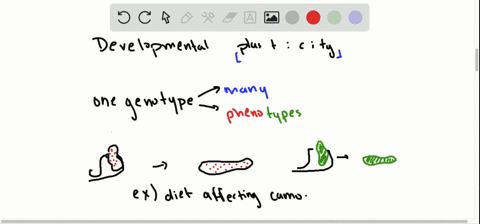 Developmental [plasticity]
one genotype → many
→ phenotypes
ex) diet affecting camo.